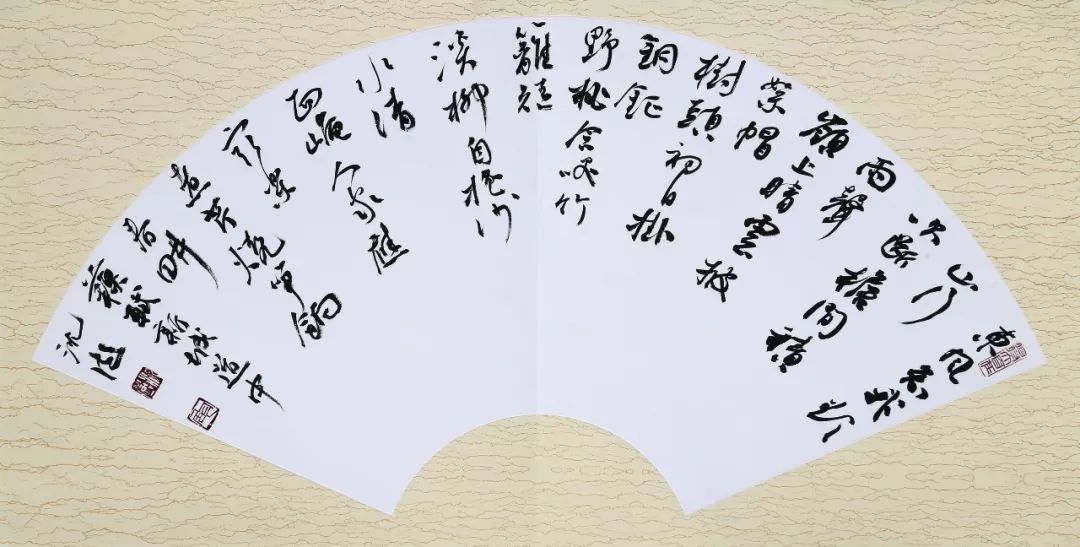 東風知我欲
山行
吹斷檐間積
雨聲
嶺上晴雲披
絮帽
樹頭初日掛
銅鉦
野桃含咲竹
籬短
溪柳自搖沙
水清
西崦人家應
最樂
煮芹燒筍餉
春耕
蘇軾新城道中